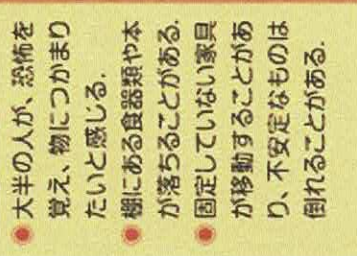 大半の人が、恐怖を
覚え、物につかまり
たいと感じる.
棚にある食器類や本
が落ちることがある.
固定していない家具
が移動することがあ
り、不安定なものは
倒れることがある.